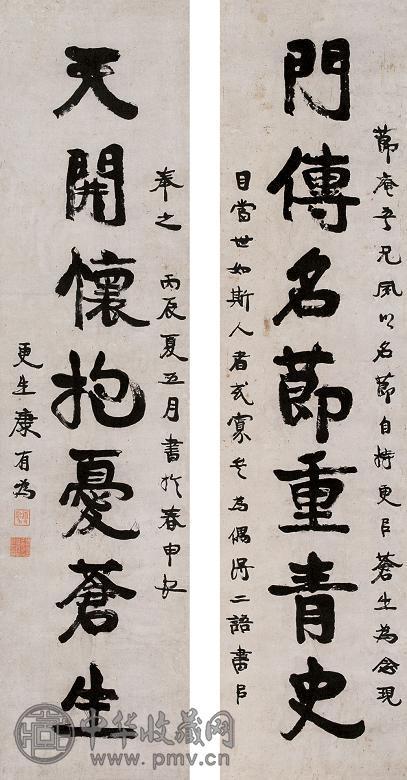 門傳名節重青史
節庵吾兄夙以名節自持更以蒼生為念現
目當世如斯人者或寡矣為偶得二語書以
天開懷抱憂蒼生
奉之 丙辰夏五月書於春申江
更生康有為
中华收藏网
www.pmv.cn